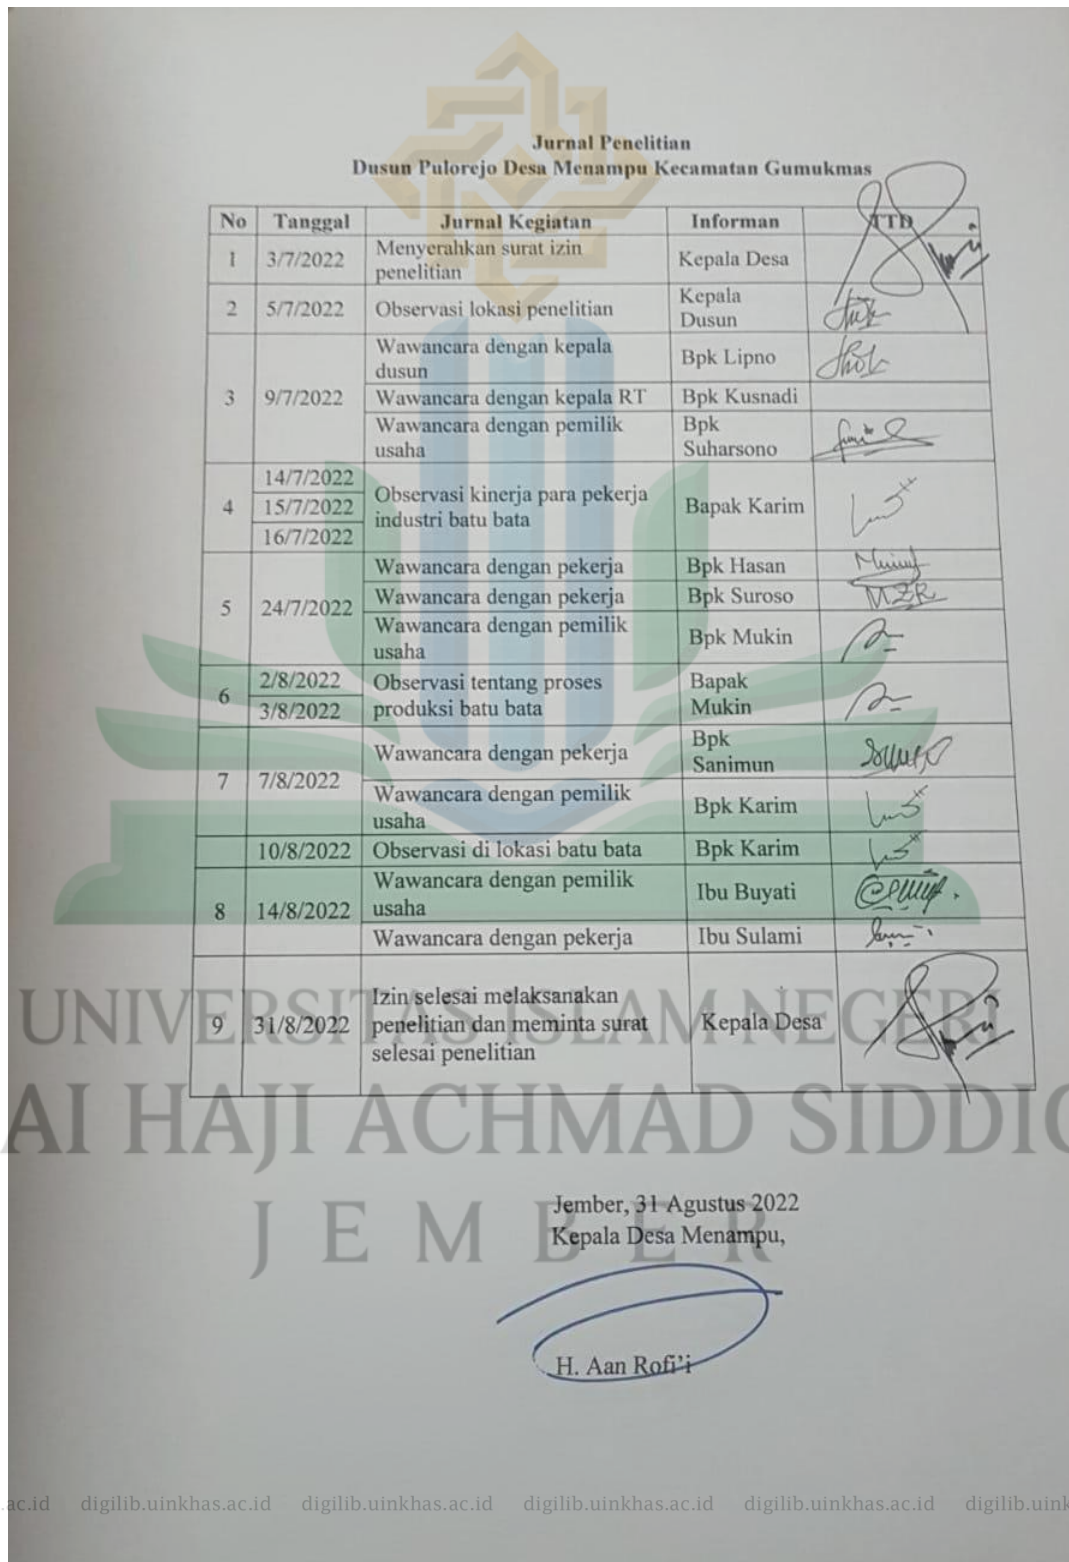 Jurnal Penelitian
Dusun Pulorejo Desa Menampu Kecamatan Gumukmas
No Tanggal Jurnal Kegiatan Informan TTD
1 3/7/2022 Menyerahkan surat izin
penelitian Kepala Desa
2 5/7/2022 Observasi lokasi penelitian Kepala
Dusun
3 9/7/2022 Wawancara dengan kepala
dusun Bpk Lipno
Wawancara dengan kepala RT Bpk Kusnadi
Wawancara dengan pemilik
usaha Bpk
Suharsono
4 14/7/2022
15/7/2022
16/7/2022
Observasi kinerja para pekerja
industri batu bata Bapak Karim
5 24/7/2022 Wawancara dengan pekerja Bpk Hasan
Wawancara dengan pekerja Bpk Suroso MZR
Wawancara dengan pemilik
usaha Bpk Mukin
6 2/8/2022
3/8/2022
Observasi tentang proses
produksi batu bata Bapak
Mukin
7 7/8/2022 Wawancara dengan pekerja Bpk
Sanimun
Wawancara dengan pemilik
usaha Bpk Karim
10/8/2022 Observasi di lokasi batu bata Bpk Karim
8 14/8/2022 Wawancara dengan pemilik
usaha Ibu Buyati
Wawancara dengan pekerja Ibu Sulami
9 31/8/2022 Izin selesai melaksanakan
penelitian dan meminta surat
selesai penelitian Kepala Desa
UNIVERSITAS ISLAM NEGERI
AI HAJI ACHMAD SIDDIQ
JEMBER
Jember, 31 Agustus 2022
Kepala Desa Menampu,
H. Aan Rofi'i
.ac.id digilib.uinkhas.ac.id digilib.uinkhas.ac.id digilib.uinkhas.ac.id digilib.uinkhas.ac.id digilib.uink